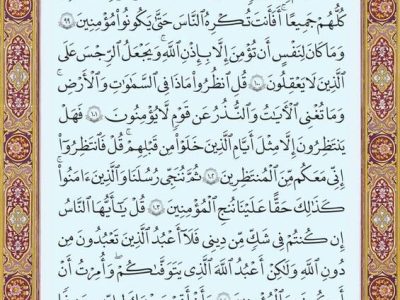 كُلُّهُمْ جَمِيعًا ۚ أَفَأَنتَ تُكْرِهُ ٱلنَّاسَ حَتَّىٰ يَكُونُوا۟ مُؤْمِنِينَ ٩٩
وَمَا كَانَ لِنَفْسٍ أَن تُؤْمِنَ إِلَّا بِإِذْنِ ٱللَّهِ ۚ وَيَجْعَلُ ٱلرِّجْسَ عَلَى
ٱلَّذِينَ لَا يَعْقِلُونَ ١٠٠ قُلِ ٱنظُرُوا۟ مَاذَا فِى ٱلسَّمَـٰوَٰتِ وَٱلْأَرْضِ ۚ
وَمَا تُغْنِى ٱلْـَٔايَـٰتُ وَٱلنُّذُرُ عَن قَوْمٍ لَّا يُؤْمِنُونَ ١٠١ فَهَلْ
يَنتَظِرُونَ إِلَّا مِثْلَ أَيَّامِ ٱلَّذِينَ خَلَوْا۟ مِن قَبْلِهِمْ ۚ قُلْ فَٱنتَظِرُوٓا۟
إِنِّى مَعَكُم مِّنَ ٱلْمُنتَظِرِينَ ١٠٢ ثُمَّ نُنَجِّى رُسُلَنَا وَٱلَّذِينَ ءَامَنُوا۟ ۚ
كَذَٰلِكَ حَقًّا عَلَيْنَا نُنجِ ٱلْمُؤْمِنِينَ ١٠٣ قُلْ يَـٰٓأَيُّهَا ٱلنَّاسُ
إِن كُنتُمْ فِى شَكٍّ مِّن دِينِى فَلَآ أَعْبُدُ ٱلَّذِينَ تَعْبُدُونَ مِن
دُونِ ٱللَّهِ وَلَـٰكِنْ أَعْبُدُ ٱللَّهَ ٱلَّذِى يَتَوَفَّىٰكُمْ ۖ وَأُمِرْتُ أَنْ